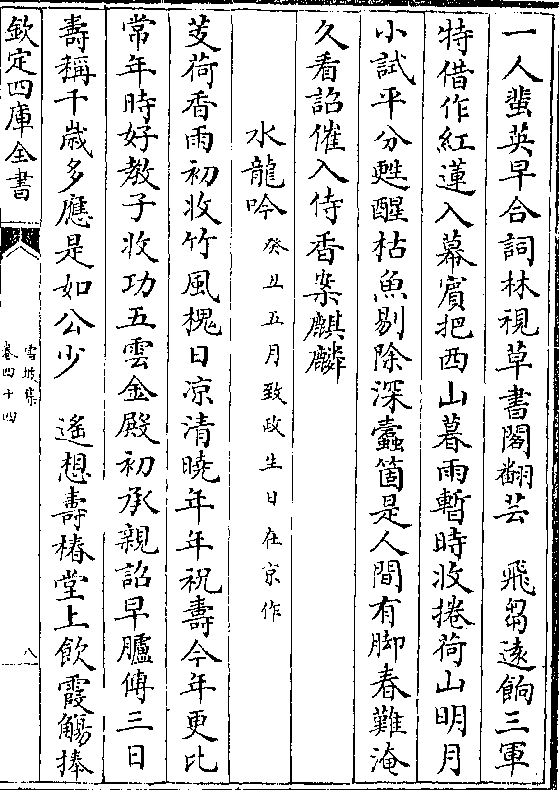 一人蜚英早合詞林視草書閣翻芸　飛芻遠餉三軍
特借作紅蓮入幕賓把西山暮雨暫時收捲荷山明月
小試平分甦醒枯魚剔除深蠹箇是人間有脚春難淹
久看詔催入侍香案麒麟
水龍吟 癸丑五月致政生日在京作
芰荷香雨初收竹風槐日凉清曉年年祝壽今年更比
常年時好教子收功五雲金殿初承親詔早臚傳三日
壽稱千歲多應是如公少　遙想壽椿堂上飲霞觴捧
欽定四庫全書
雪坡集
卷四十四
八